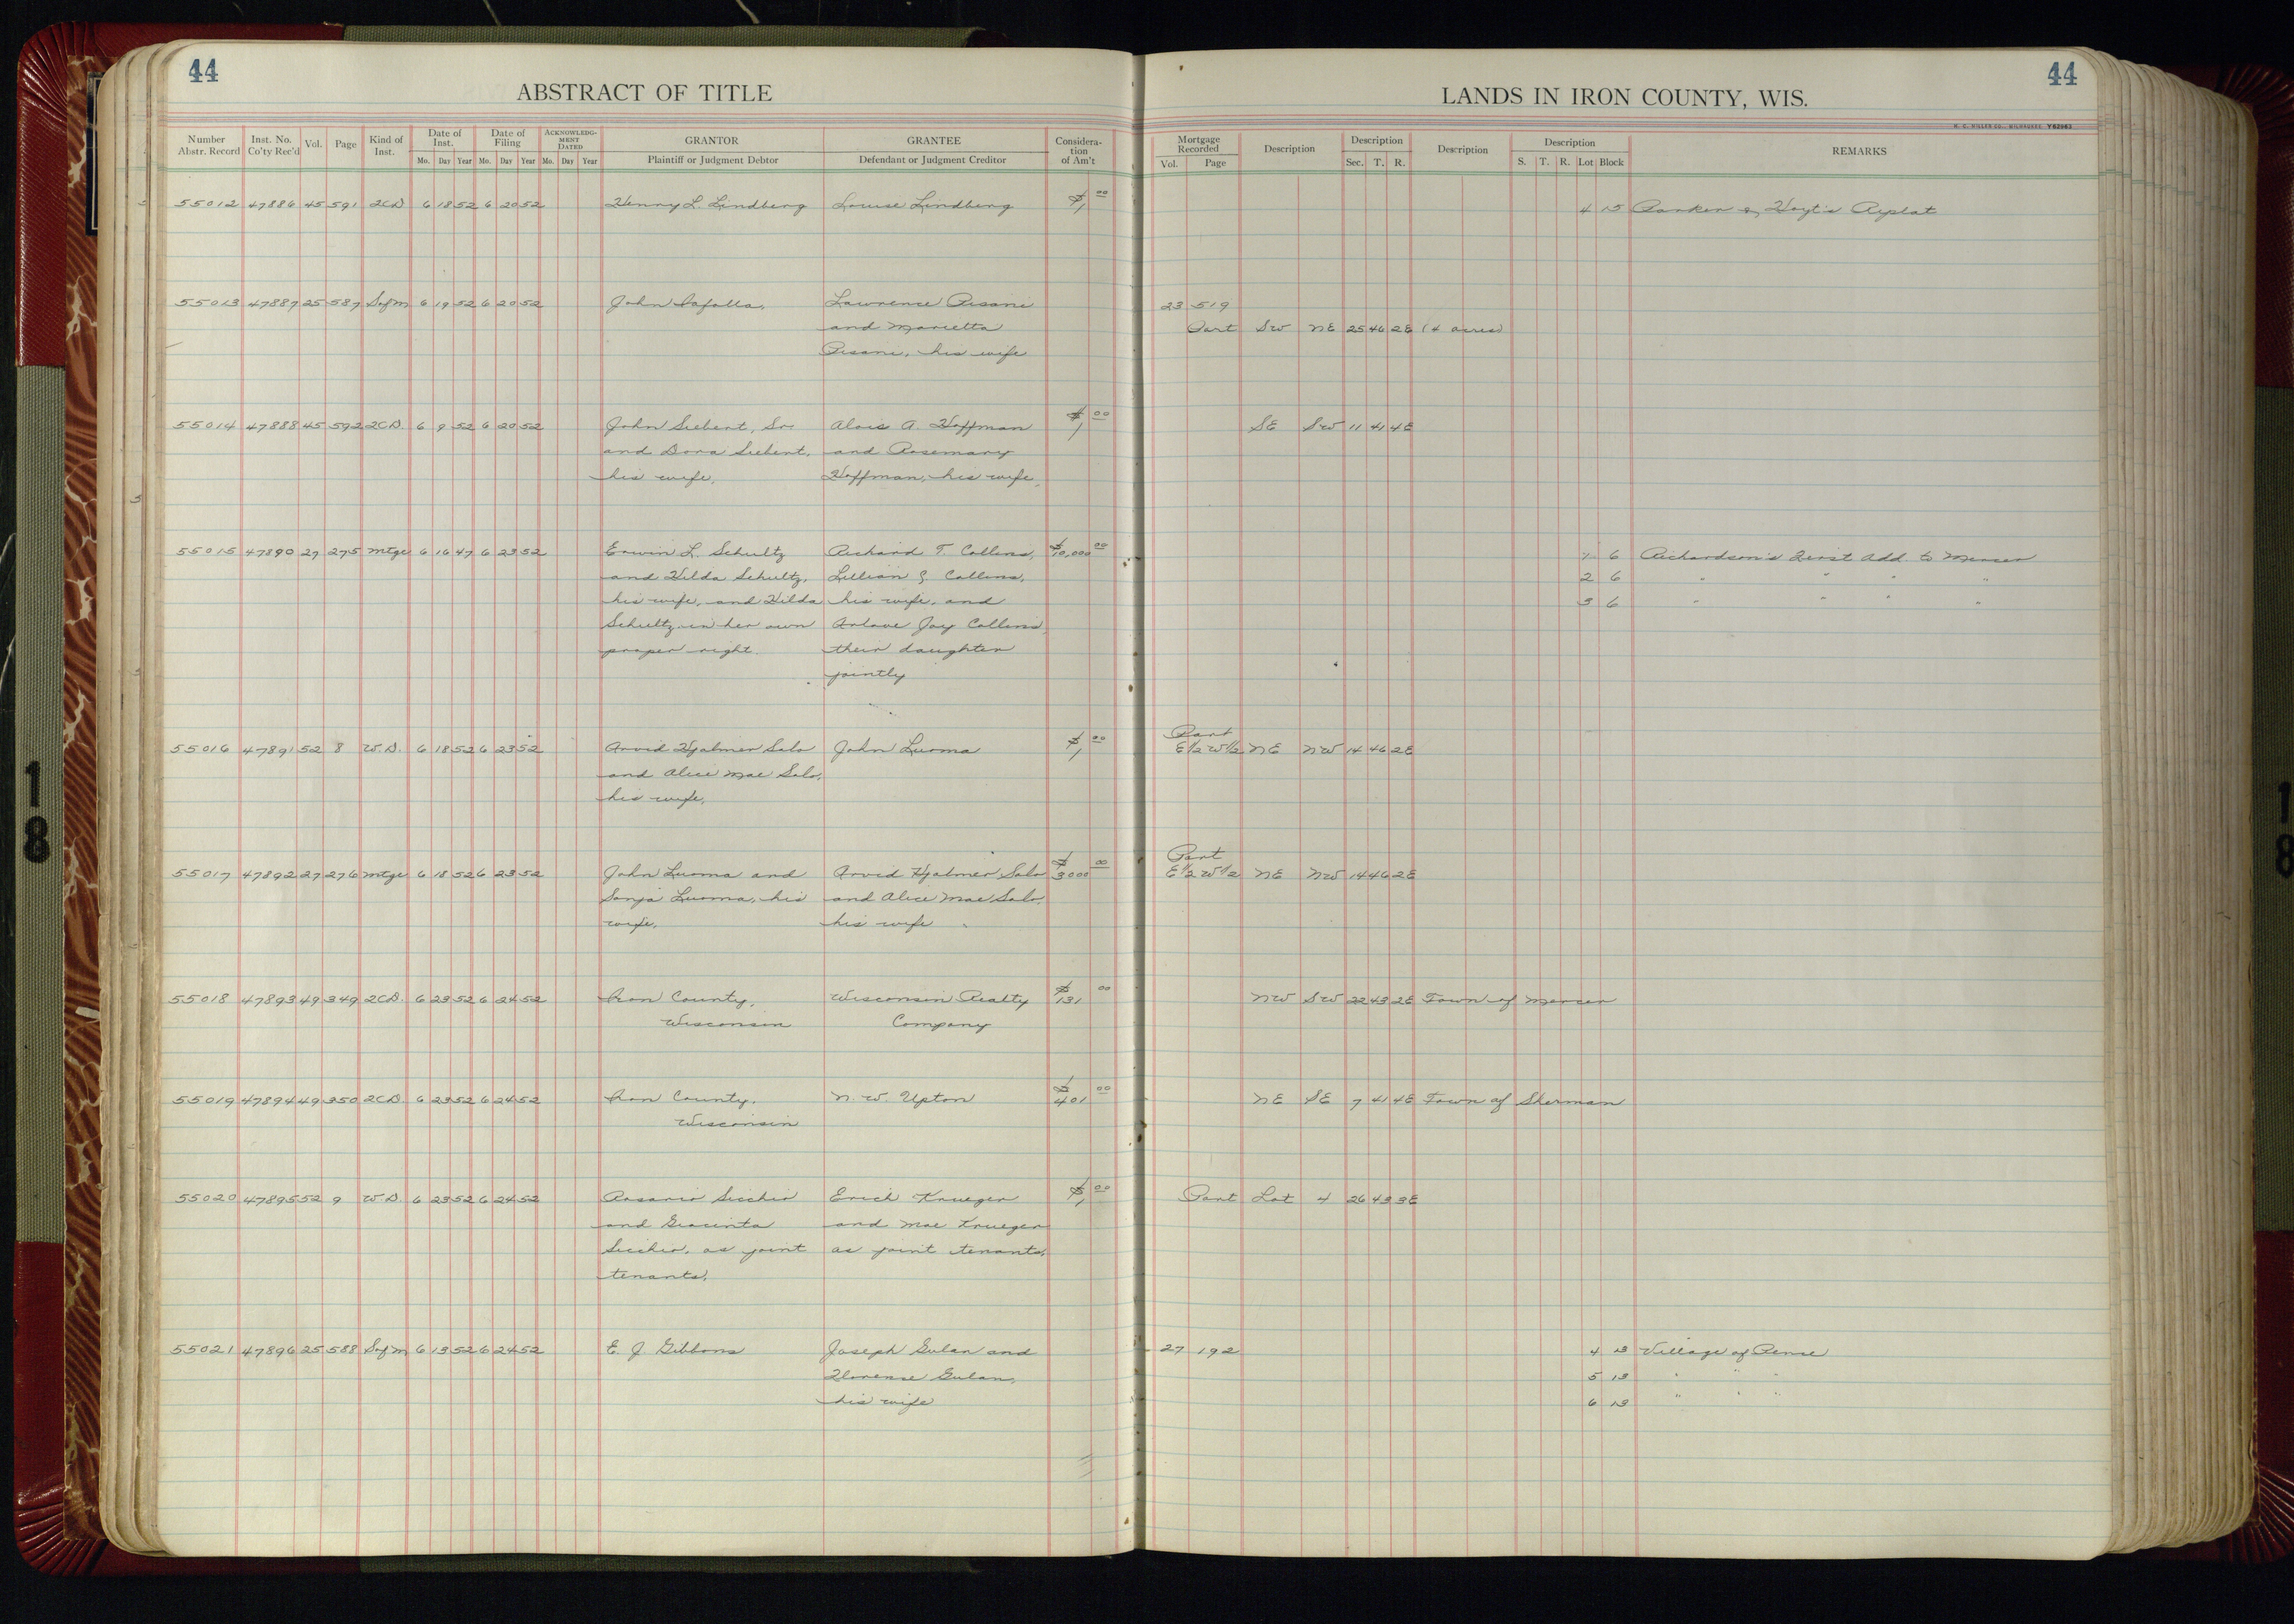 44
44
ABSTRACT OF TITLE
LANDS IN IRON COUNTY, WIS.
H. C. MILLER CO., MILWAUKEE Y62963
Number Abstr. Record
Inst. No. Co'ty Rec'd
Vol.
Page
Kind of Inst.
Date of Inst.
Mo. Day Year
Date of Filing
Mo. Day Year
ACKNOWLEDGMENT DATED
Mo. Day Year
GRANTOR
Plaintiff or Judgment Debtor
GRANTEE
Defendant or Judgment Creditor
Considera-
tion
of Am't
Mortgage Recorded
Vol. Page
Description
Description
Sec. T. R.
Description
Description
S. T. R. Lot Block
REMARKS
55012 47886 45 591 2CD 6 18 52 6 20 52 Henry L. Lindberg Louise Lindberg $1 00 4 15 Parker & Hoyt's Replat
55013 47887 25 587 Sofm 6 19 52 6 20 52 John Lafolla, Lawrence Pisani 23 519
and Marietta Part SW NE 25 46 2E (4 acres)
Pisani, his wife
55014 47888 45 592 2CD. 6 9 52 6 20 52 John Siebert, Sr. Alois A. Hoffman $1 00 SE SW 11 41 4E
and Dora Siebert, and Rosemary
his wife, Hoffman, his wife,
55015 47890 27 275 mtge 6 16 47 6 23 52 Erwin L. Schultz Richard T. Collins, $10,000 00 1 6 Richardson's First Add. to Mercer
and Hilda Schultz, Lillian G. Collins, 2 6 " " " "
his wife, and Hilda his wife, and 3 6 " " " "
Schultz in her own Joy Collins,
proper right. their daughter
jointly
55016 47891 52 8 W.D. 6 18 52 6 23 52 Arvid Hjalmer Salo John Luoma $1 00 Part E½ W½ NE NW 14 46 2E
and Alice Mae Salo,
his wife,
55017 47892 27 276 mtge 6 18 52 6 23 52 John Luoma and Arvid Hjalmer Salo $3000 00 Part E½ W½ NE NW 14 46 2E
Sonja Luoma, his and Alice Mae Salo,
wife, his wife
55018 47893 49 349 2CD. 6 23 52 6 24 52 Iron County, Wisconsin Realty $131 00 NW SW 22 43 2E Town of Mercer
Wisconsin Company
55019 47894 49 350 2CD. 6 23 52 6 24 52 Iron County, N. W. Upton $401 00 NE SE 7 41 4E Town of Sherman
Wisconsin
55020 47895 52 9 W.D. 6 23 52 6 24 52 Rosario Sicchio Erich Krueger $1 00 Part Lot 4 26 43 3E
and Giacinta and Mae Krueger
Sicchio, as joint as joint tenants,
tenants,
55021 47896 25 588 Sofm 6 13 52 6 24 52 E. J. Gibbons Joseph Gulan and 27 192 4 13 Village of Pence
Florence Gulan, 5 13 " " "
his wife 6 13 " " "
18
18